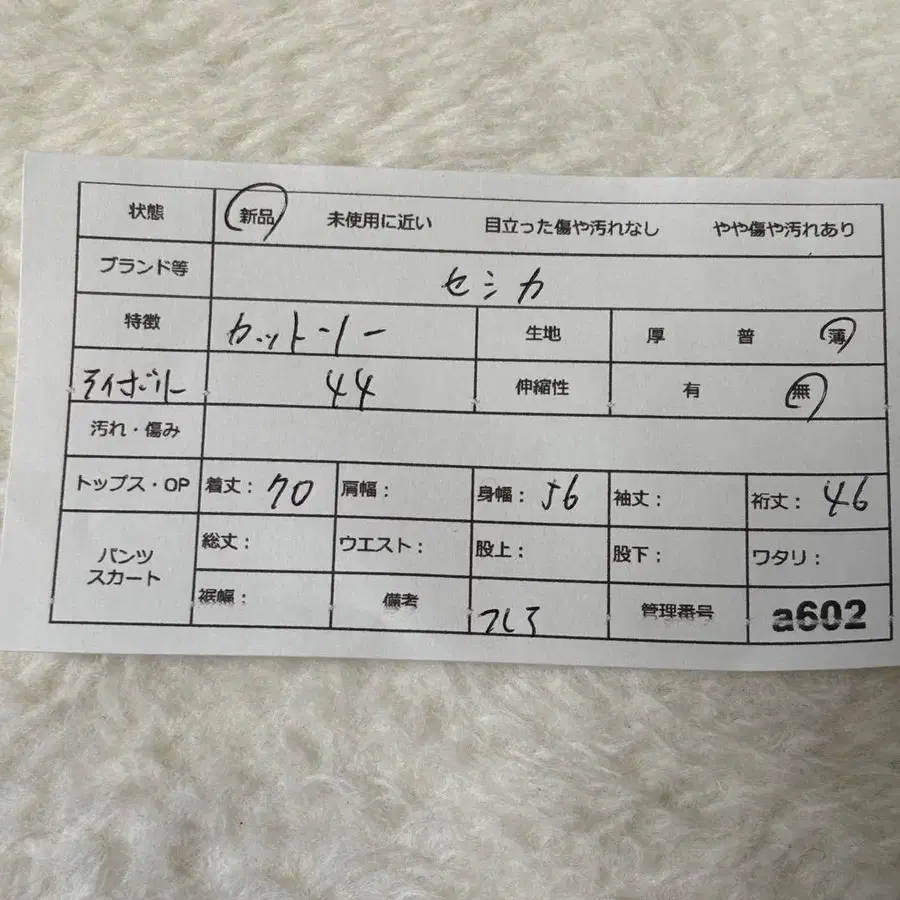 状態 新品 未使用に近い 目立った傷や汚れなし やや傷や汚れあり
ブランド等 セシカ
特徴 カットソー 生地 厚 普 薄
44 伸縮性 有 無
汚れ・傷み
トップス・OP 着丈： 70 肩幅： 身幅： 56 袖丈： 裄丈： 46
パンツ スカート 総丈： ウエスト： 股上： 股下： ワタリ：
裾幅： 備考 管理番号 a602